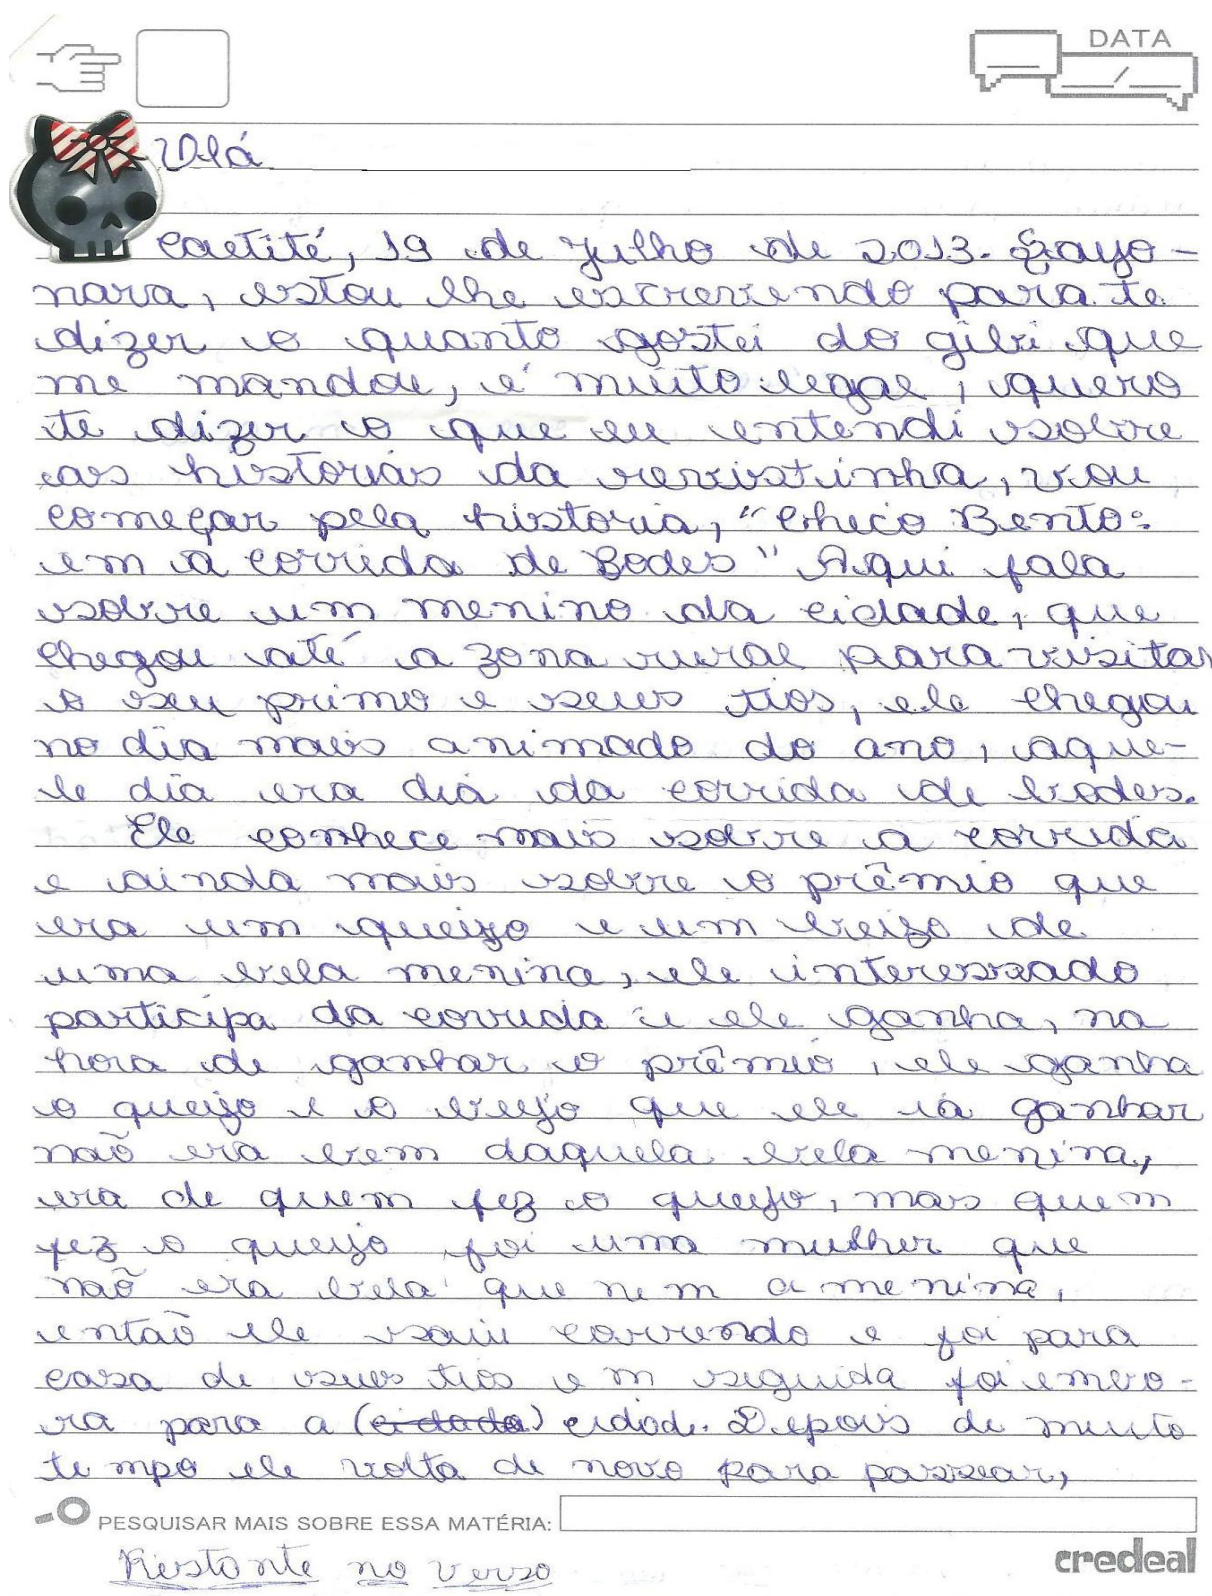 DATA
Olá
Caetité, 19 de Julho de 2013. Sayo-
nara, estou lhe escrevendo para te
dizer o quanto gostei do gibi que
me mandou, é muito legal, quero
te dizer o que eu entendi sobre
as historias da revistinha, vou
começar pela historia, "Chico Bento:
em a corrida de Bodes" Aqui fala
sobre um menino da cidade, que
chegou até a zona rural para visitar
o seu primo e seus tios, ele chegou
no dia mais animado do ano, aque-
le dia era dia da corrida de bodes.
Ele conhece mais sobre a corrida
e ainda mais sobre o prêmio que
era um queijo e um beijo de
uma bela menina, ele interessado
participa da corrida e ele ganha, na
hora de ganhar o prêmio, ele ganha
o queijo e o beijo que ele ia ganhar
não era bem daquela bela menina,
era de quem fez o queijo, mas quem
fez o queijo foi uma mulher que
não era bela que nem a menina,
então ele saiu correndo e foi para
casa de seus tios em seguida foi embo-
ra para a (cidade) cidad. Depois de muito
tempo ele volta de novo para passear,
PESQUISAR MAIS SOBRE ESSA MATÉRIA:
credeal
Restante no verso